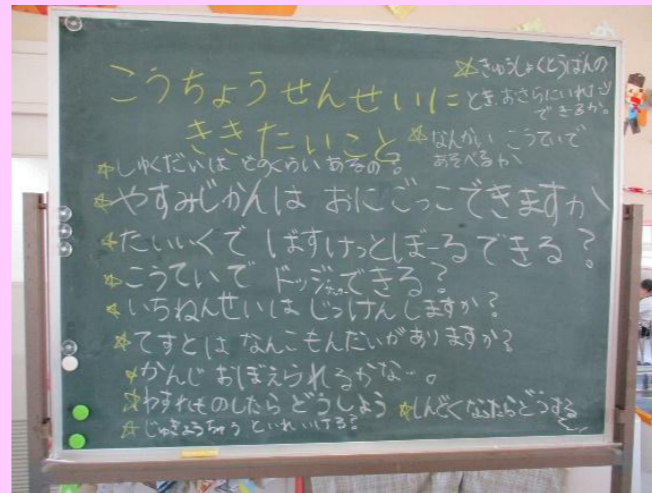 こうちょうせんせいに
ききたいこと
☆きゅうしょくとうばんの
とき、おさらにいれたり
できるか。
☆なんかい こうていで
あそべるか
☆しゅくだいは どのくらい あるの?
☆やすみじかんは おにごっこできますか
☆たいいくで ばすけっとぼーるできる?
☆こうていで ドッジボールできる?
☆いちねんせいは じっけんしますか?
☆てすとは なんこもんだいが ありますか?
☆かんじ おぼえられるかな…。
☆わすれものしたら どうしよう
☆しんどくなったらどうする
☆じゅぎょうちゅう といれいける?